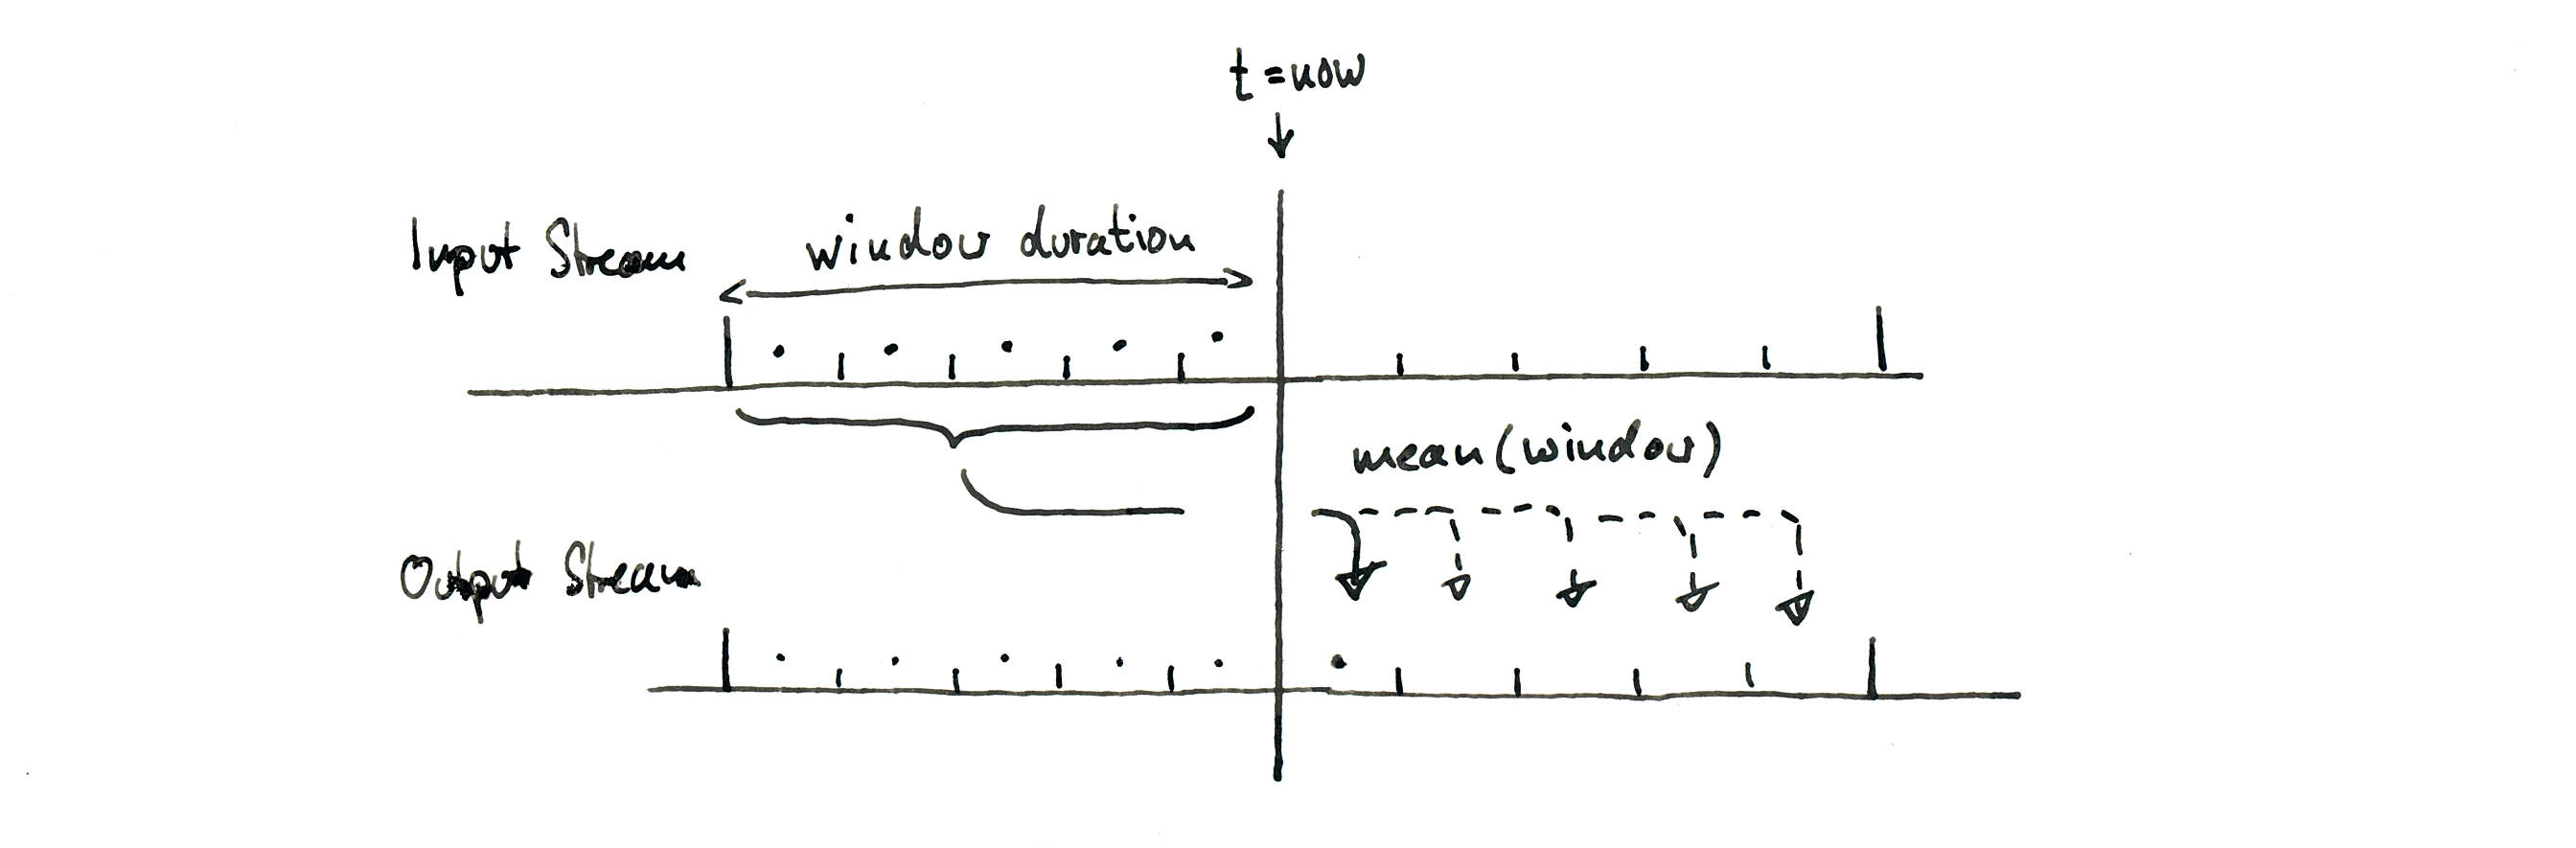 t = now
Input Stream
window duration
mean (window)
Output Stream